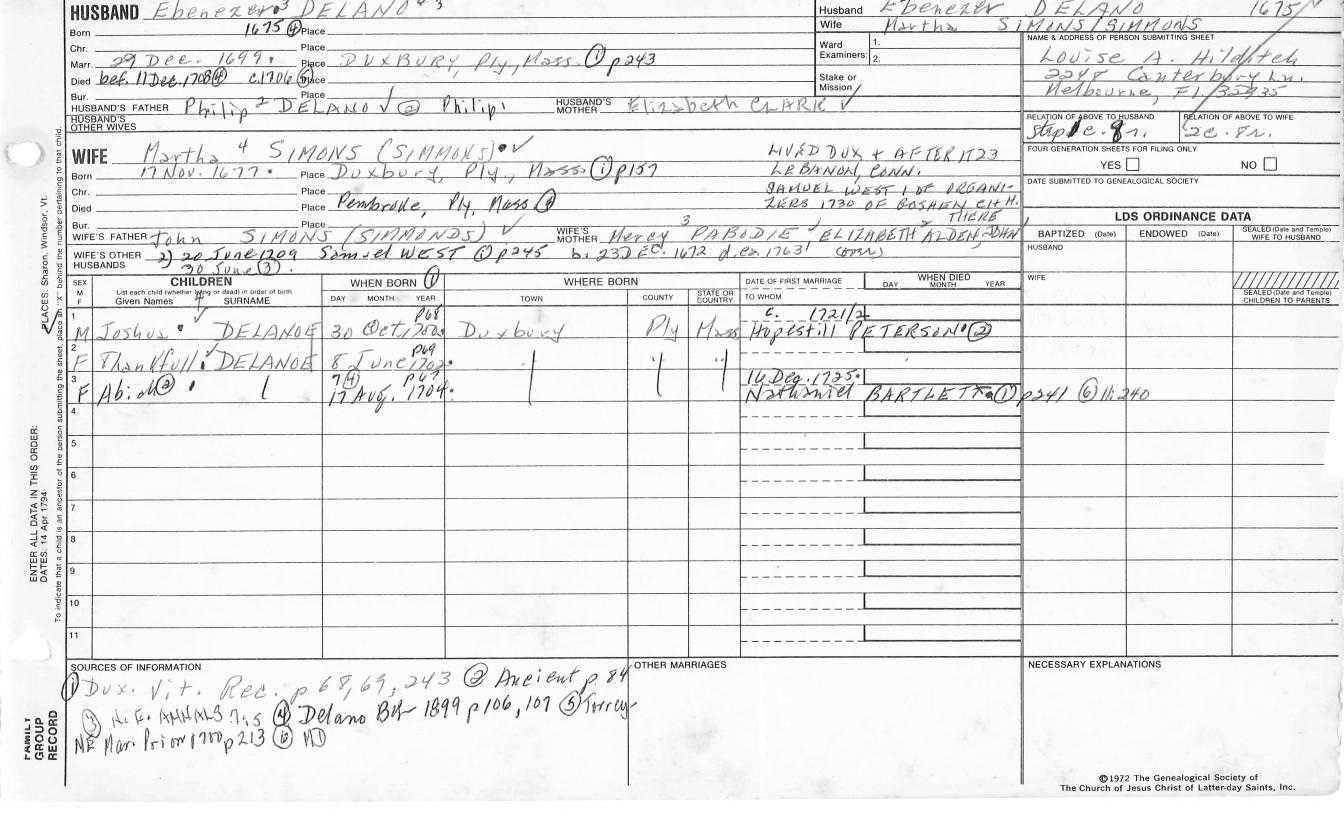 HUSBAND Ebenezer 3 DELANO
Born 1675 ④ Place
Chr. Place
Marr. 29 Dec. 1699. Place DUXBURY, Ply., Mass. ① p243
Died bef. 11 Dec. 1708 ④ c. 1706 ⑤ Place
Bur. Place
HUSBAND'S FATHER Philip 2 DELANO ✓ ② Philip 1 HUSBAND'S MOTHER Elizabeth CLARK ✓
HUSBAND'S OTHER WIVES
WIFE Martha 4 SIMONS (SIMMONS) ✓
Born 17 Nov. 1677. Place Duxbury, Ply., Mass. ① p157
Chr. Place
Died Place Pembroke, Ply, Mass
Bur. Place
LIVED DUX & AFTER 1723
LEBANON, CONN.
SAMUEL WEST 1 OF ORGANI-
ZERS 1730 OF GOSHEN CHH.
THERE
WIFE'S FATHER John SIMONS (SIMMONDS) ✓ WIFE'S MOTHER Mercy 3 PABODIE ✓ ELIZABETH 2 ALDEN, JOHN
WIFE'S OTHER HUSBANDS 2) 20 June 1709 Samuel WEST ① p245 b. 23 DEC. 1672 d. ca 1763 (over)
30 June ③.
Husband Ebenezer DELANO 1675
Wife Martha SIMONS/SIMMONS
Ward Examiners: 1.
2.
Stake or Mission
NAME & ADDRESS OF PERSON SUBMITTING SHEET
Louise A. Hilditch
2248 Canterbury Ln.
Melbourne, FL 32935
RELATION OF ABOVE TO HUSBAND RELATION OF ABOVE TO WIFE
Step 1c. 8r. 2c. 8r.
FOUR GENERATION SHEETS FOR FILING ONLY
YES NO
DATE SUBMITTED TO GENEALOGICAL SOCIETY
LDS ORDINANCE DATA
BAPTIZED (Date) ENDOWED (Date) SEALED (Date and Temple) WIFE TO HUSBAND
HUSBAND
WIFE
SEALED (Date and Temple) CHILDREN TO PARENTS
SEX M F
CHILDREN
List each child (whether living or dead) in order of birth
Given Names 4 SURNAME
WHEN BORN ①
DAY MONTH YEAR
WHERE BORN
TOWN COUNTY STATE OR COUNTRY
DATE OF FIRST MARRIAGE
TO WHOM
WHEN DIED
DAY MONTH YEAR
1 p68 c. 1721/2
M Joshua DELANOE 30 Oct. 1700 Duxbury Ply Mass Hopestill PETERSON ②
2 p69
F Thankfull DELANOE 8 June 1702. " " "
3 7 ④ p67 16 Dec. 1725.
F Abiah ② 17 Aug. 1704. Nathaniel BARTLETT ① p241 ⑥ 11:240
4
5
6
7
8
9
10
11
SOURCES OF INFORMATION
① Dux. Vit. Rec. p 68, 69, 243 ② Ancient p. 84
③ N.E. ANNALS 7:5 ④ Delano BK 1899 p 106, 107 ⑤ Torrey-
NE Mar. Prior 1700 p 213 ⑥ MD
OTHER MARRIAGES
NECESSARY EXPLANATIONS
©1972 The Genealogical Society of
The Church of Jesus Christ of Latter-day Saints, Inc.
ENTER ALL DATA IN THIS ORDER:
DATES: 14 Apr 1794
PLACES: Sharon, Windsor, Vt.
To indicate that a child is an ancestor of the person submitting the sheet, place an "X" behind the number pertaining to that child.
FAMILY
GROUP
RECORD